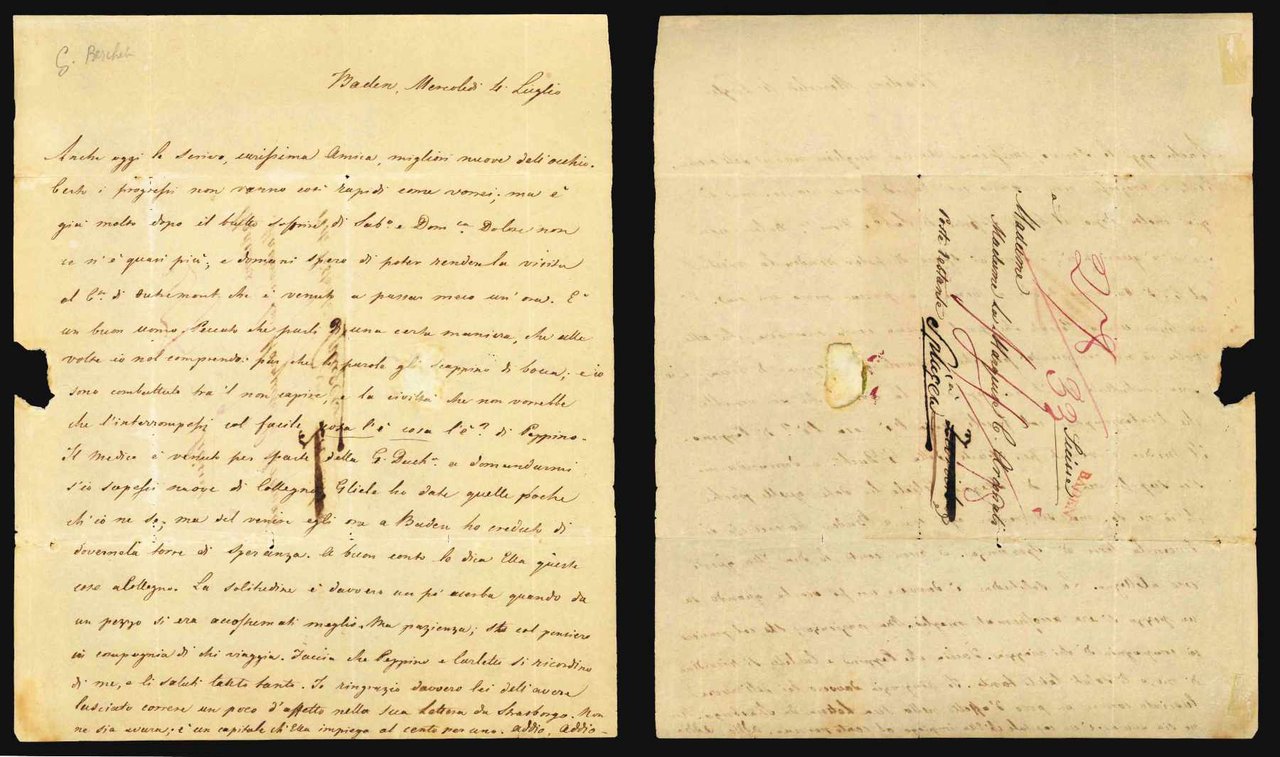 G. Berchet
Baden, Mercoledì 4 Luglio
Anche oggi le scrivo, carissima Amica, migliori nuove dell'occhio.
Certo i progressi non vanno così rapidi come vorrei; ma è
già molto dopo il brutto soffrire di Sab.º e Dom.ca Dolore non
ce n'è quasi più; e domani spero di poter render la visita
al C.te di che è venuto a passar meco un'ora. È
un buon uomo. Peccato che parli d'una certa maniera, che alle
volte io nol comprendo: par che le parole gli scappino di bocca; e io
sono combattuto tra 'l non capire, e la civiltà che non vorrebbe
che l'interrompessi col facile cosa l'è cosa l'è? di Peppino.
Il medico è venuto per parte della G. Duch.a a domandarmi
s'io sapessi nuove di Collegno. Gliele ho date quelle poche
ch'io ne so; ma del venire egli ora a Baden ho creduto di
dovernela torre di speranza. A buon conto le dica Ella queste
cose a Collegno. La solitudine è davvero un po' acerba quando da
un pezzo si era accostumati meglio. Ma pazienza; sto col pensiero
in compagnia di chi viaggia. Faccia che Peppino e Carletto si ricordino
di me, e li saluti tanto tanto. Io ringrazio davvero lei dell'avere
lasciato correre un poco d'affetto nella sua lettera da Strasborgo. Non
ne sia avara; è un capitale ch'Ella impiega al cento per uno. Addio, addio.
a
Madame
Madame La Marquise C. Arconati
Poste restante
à
Suisse
BADEN